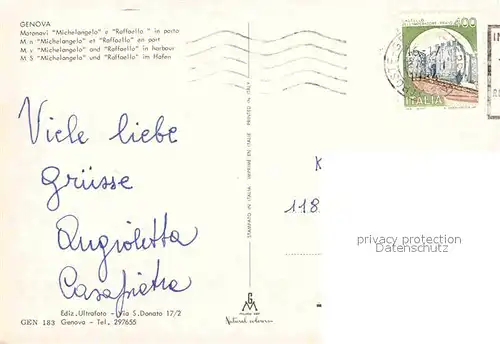 GENOVA
Motonavi "Michelangelo" e "Raffaello" in porto
M n "Michelangelo" et "Raffaello" en port
M v "Michelangelo" and "Raffaello" in harbour
M S "Michelangelo" und "Raffaello" im Hafen
400
ITALIA
Viele liebe
Grüsse
Angioletta
Casapietra
STAMPATO IN ITALIA IMPRIMÉ EN ITALIE PRINTED IN ITALY
K
118
privacy protection
(datenschutz)
Ediz. Ultrafoto - Via S. Donato 17/2
GEN 183 Genova - Tel. 297655
Natural colour